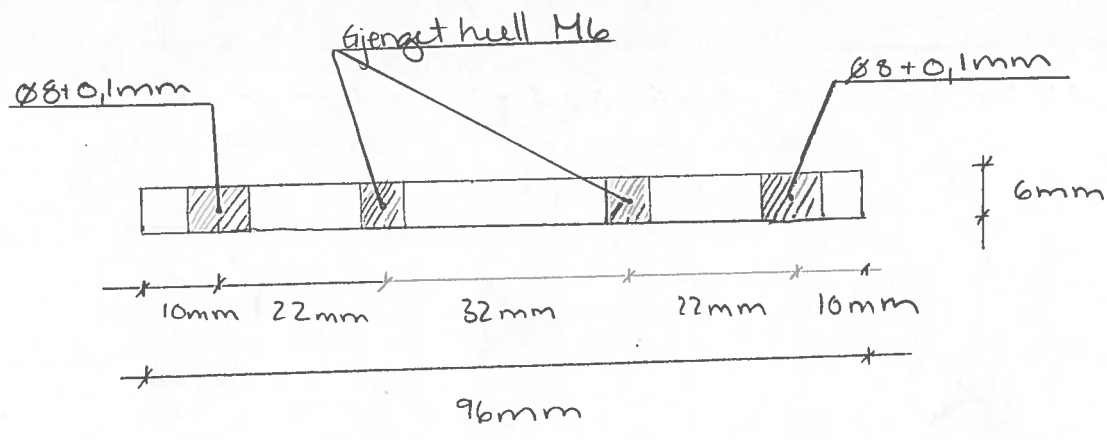 Gjenget hull M6
Ø8+0,1mm
Ø8+0,1mm
6mm
10mm 22mm 32mm 22mm 10mm
96mm